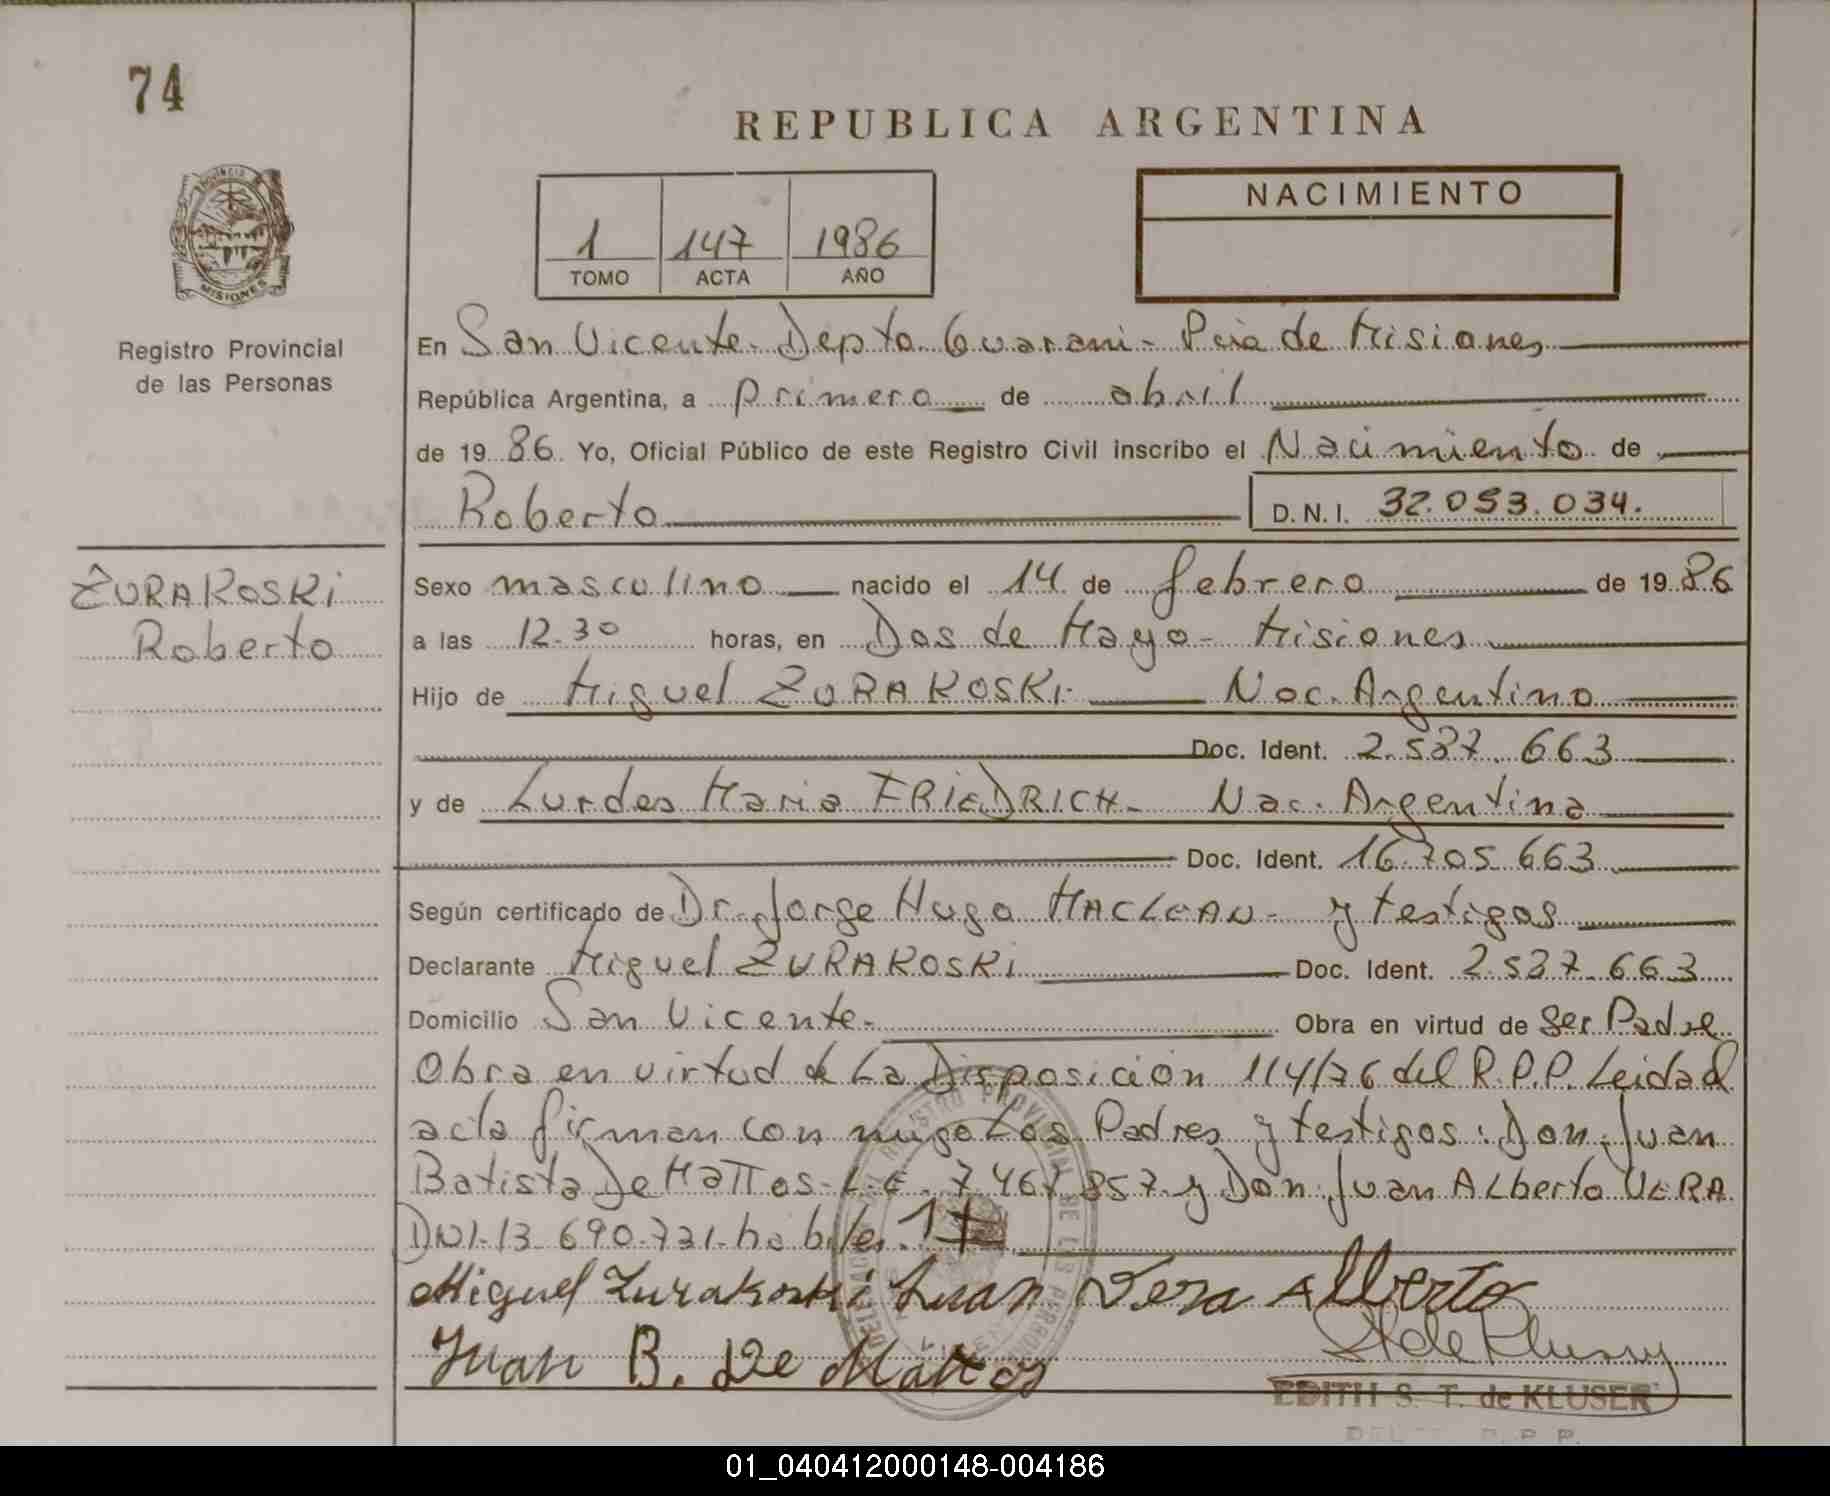 74
REPUBLICA ARGENTINA
NACIMIENTO
1 147 1986
TOMO ACTA AÑO
PROVINCIA DE
MISIONES
Registro Provincial
de las Personas
En San Vicente - Depto Guarani - Pcia de Misiones
República Argentina, a primero de abril
de 1986 Yo, Oficial Público de este Registro Civil inscribo el Nacimiento de
Roberto D.N.I. 32.053.034.
ZURAKOSKi
Roberto
Sexo masculino nacido el 14 de febrero de 1986
a las 12.30 horas, en Dos de Mayo - Misiones
Hijo de Miguel ZURAKOSKI - Nac. Argentino
Doc. Ident. 2.537.663
y de Lurdes Maria FRIEDRICH - Nac. Argentina
Doc. Ident. 16.705.663
Según certificado de Dr. Jorge Hugo MACLEAN - y testigos
Declarante Miguel ZURAKOSKi Doc. Ident. 2.537.663
Domicilio San Vicente - Obra en virtud de ser Padre
Obra en virtud de La Disposición 114/76 del R.P.P. Leida el
acta firman con migo Los Padres y testigos: Don Juan
Batista De MaTTos - L.E. 7.467.857 y Don Juan ALberto VERA
DNI-13.690.731-habiles.
Miguel Zurakoski Juan Vera Alberto
Juan B. De Mattos
EDITH S. T. de KLUSER
R. P. P.
01_040412000148-004186